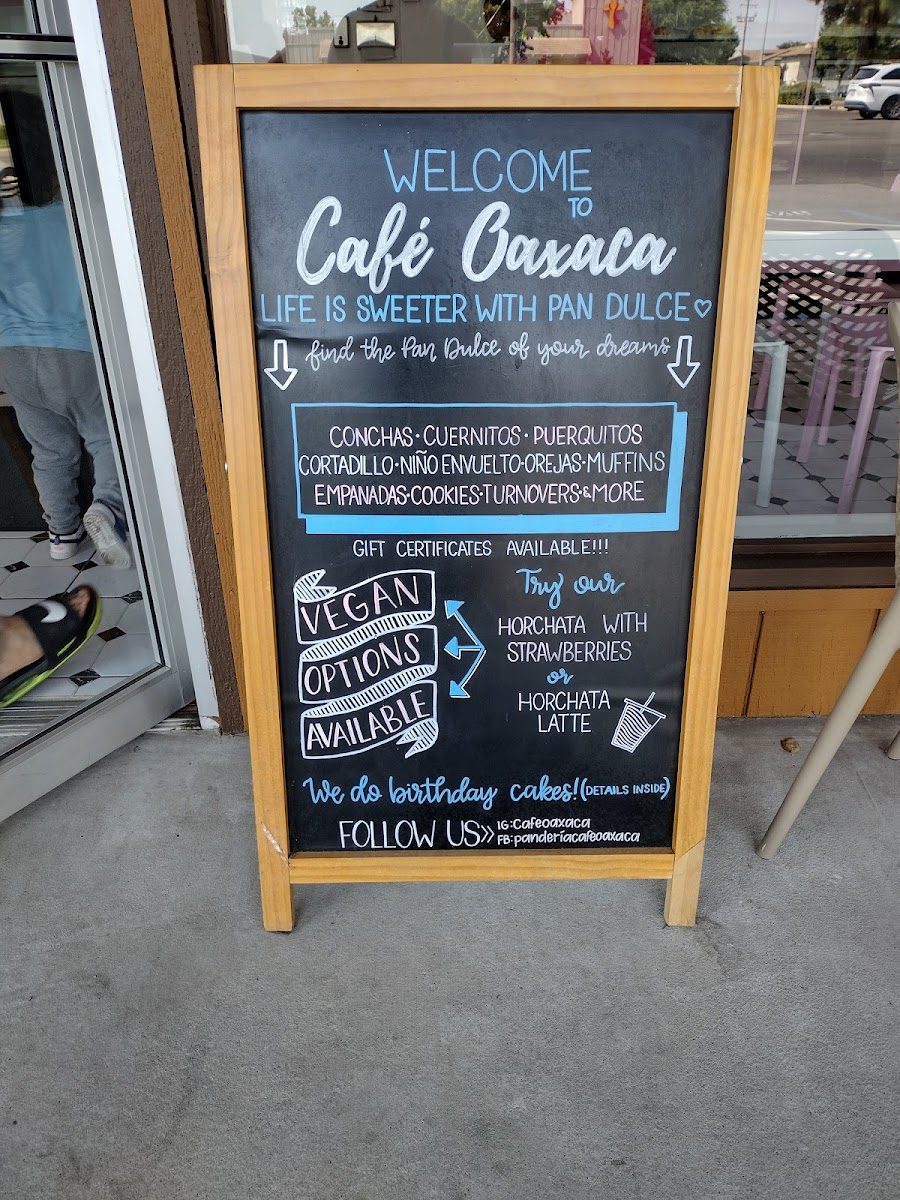 WELCOME
TO
Café Oaxaca
LIFE IS SWEETER WITH PAN DULCE
find the Pan Dulce of your dreams
CONCHAS • CUERNITOS • PUERQUITOS
CORTADILLO • NIÑO ENVUELTO • OREJAS • MUFFINS
EMPANADAS • COOKIES • TURNOVERS & MORE
GIFT CERTIFICATES AVAILABLE!!!
VEGAN
OPTIONS
AVAILABLE
Try our
HORCHATA WITH
STRAWBERRIES
or
HORCHATA
LATTE
We do birthday cakes! (DETAILS INSIDE)
FOLLOW US»
IG: Cafeoaxaca
FB: panderíacafeoaxaca